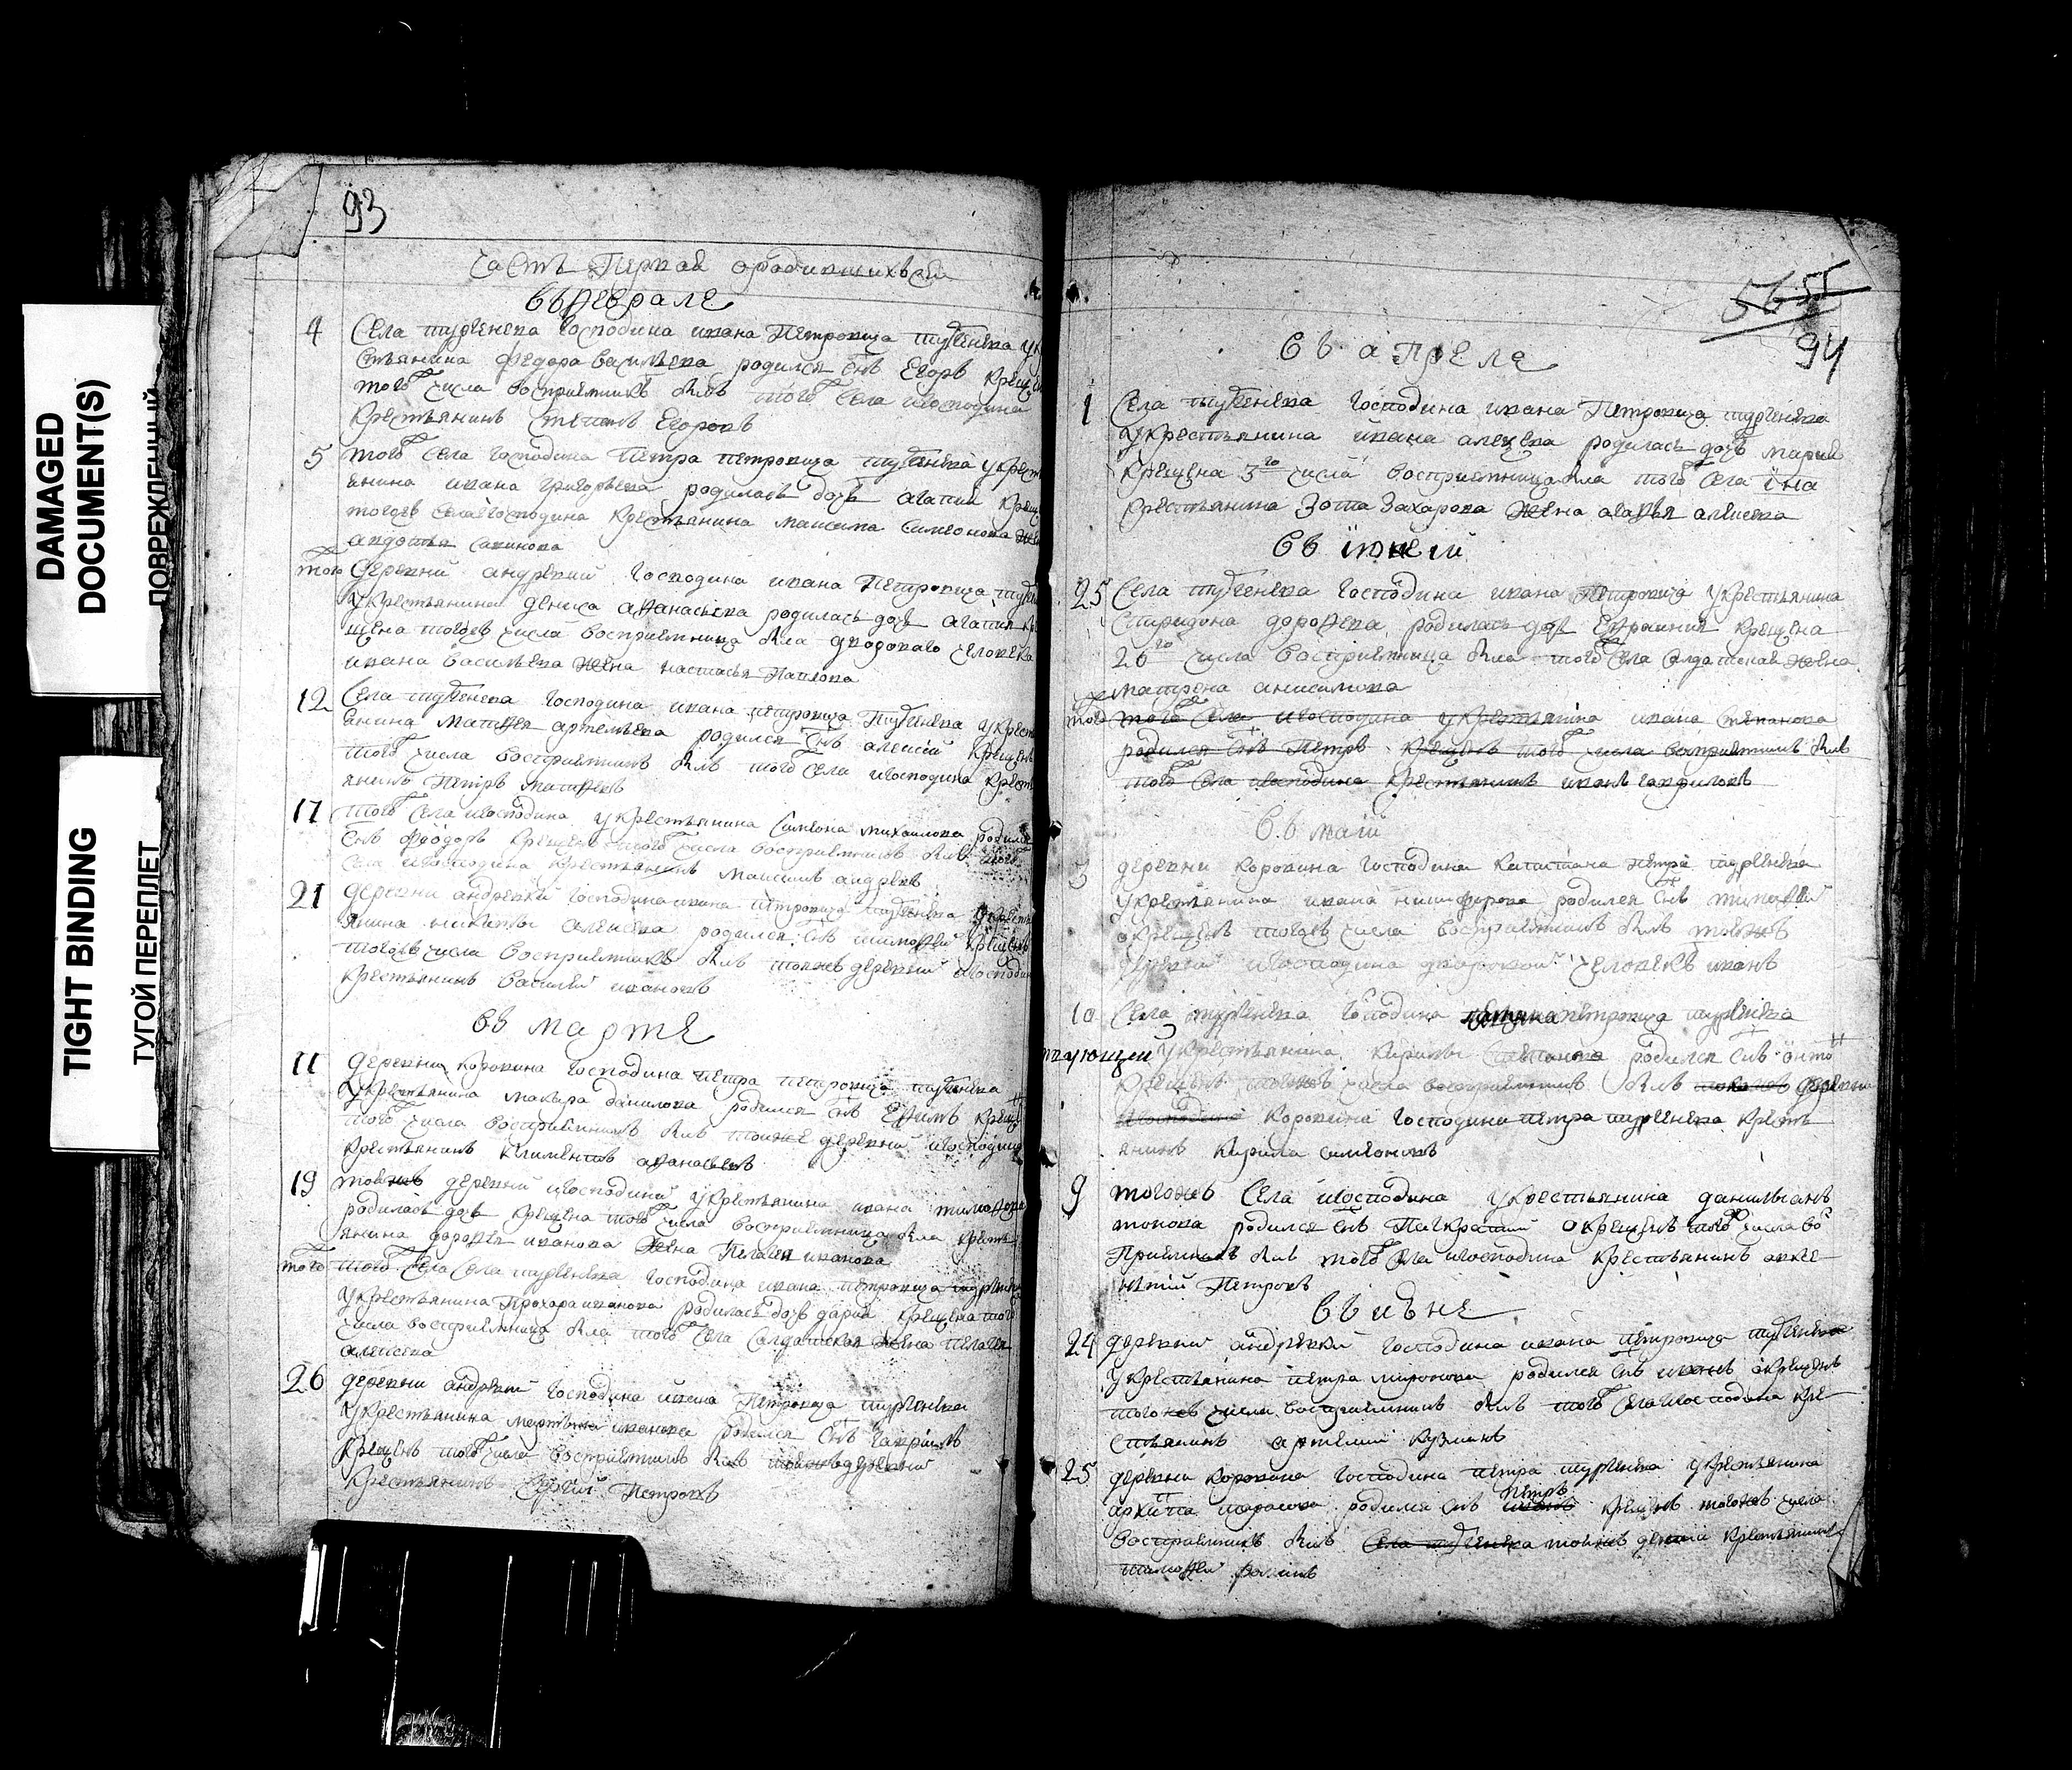 DAMAGED
DOCUMENT(S)
ПОВРЕЖДЕННЫЙ
TIGHT BINDING
ТУГОЙ ПЕРЕПЛЕТ
93
часть Первая ородившихъся
въ феврале
4 Села тургенева Господина ивана Петровича тургенева укре
стьянина федора васильева родился снъ Егоръ крещ
того числа восприемникъ былъ того села игосподина
крестьянинъ Степанъ Егоровъ
5 того села господина Петра петровича тургенева укресть
янина ивана григорьева родилась дочь агапия крещ
тогожъ села господина крестьянина максима симеонова жена
авдотья савинова
того деревни андреевки Господина ивана Петровича турге
укрестьянина дениса афанасьева родилась дочь агапия кре
щена тогожъ числа восприемница была двороваго человека
ивана васильева жена настасья Павлова
12 Села тургенева господина ивана петровича Тургенева укресть
янина матфея артемьева родился снъ алексей крещенъ
того числа восприемникъ былъ того села игосподина кресть
янинъ Петръ матфеевъ
17 того села игосподина укрестьянина симеона михаилова родился
снъ феодоръ крещенъ того числа восприемникъ былъ того
села игосподина крестьянинъ максимъ андреевъ
21 деревни андреевки господина ивана петровича тургенева укресть
янина никиты алексеева родился снъ тимофей крещенъ
тогожъ числа восприемникъ былъ тояжъ деревни игосподина
крестьянинъ василей ивановъ
въ марте
11 деревни коровина господина петра петровича тургенева
укрестьянина макара данилова родился снъ Ефимъ крещ
того числа восприемникъ былъ тояже деревни игосподина
крестьянинъ климентъ афанасьевъ
19 тояжъ деревни игосподина укрестьянина ивана тимофеева
родилась дочь крещена того числа восприемница была кресть
янина дорофея иванова жена Пелагея иванова
того того села села тургенева господина ивана петровича тургенева
укрестьянина Прохора иванова родилась дочь дария крещена того
числа восприемница была того села салдатская жена пелагея
алексеева
26 деревни андреевки господина ивана Петровича тургенева
укрестьянина мартына иванова родился снъ гавриилъ
крещенъ того числа восприемникъ былъ тояжъ деревни
крестьянинъ Сергей Петровъ
56 55
94
въ апреле
1 Села тургенева господина ивана Петровича тургенева
укрестьянина ивана родилась дочь мария
крещена 3го числа восприемница была того села
крестьянина Зота Захарова жена агафья алексеева
25 Села тургенева господина ивана Петровича укрестьянина
Спиридона дорофеева родилась дочь Евфимия крещена
26го числа восприемница была того села салдатская жена
матрена анисимова
того того села игосподина укрестьянина ивана степанова
родился снъ Петръ крещенъ того числа восприемникъ былъ
того села игосподина крестьянинъ иванъ гавриловъ
въ маии
3 деревни коровина господина капитана петра тургенева
укрестьянина ивана никифорова родился снъ тимофей
окрещенъ тогожъ числа восприемникъ былъ тояжъ
деревни игосподина дворовой человекъ иванъ
10 Села тургенева господина петровича тургенева
укрестьянина кирилы степанова родился снъ
крещенъ тогожъ числа восприемникъ былъ тояжъ деревни
игосподина коровина господина петра тургенева кресть
янинъ кирила симеоновъ
9 тогожъ села игосподина укрестьянина данилы ан
тонова родился снъ Панкратий окрещенъ того числа во
приемникъ былъ того села игосподина крестьянинъ авксе
нтий Петровъ
въ июне
24 деревни андреевки господина ивана петровича тургенева
укрестьянина петра миронова родился снъ иванъ окрещенъ
тогожъ числа восприемникъ былъ того села игосподина кре
стьянинъ артемий кузминъ
25 деревни коровина господина петра тургенева укрестьянина
архипа родился снъ иванъ Петръ крещенъ тогожъ числа
восприемникъ былъ села тургенева тояжъ деревни крестьянинъ
тимофей